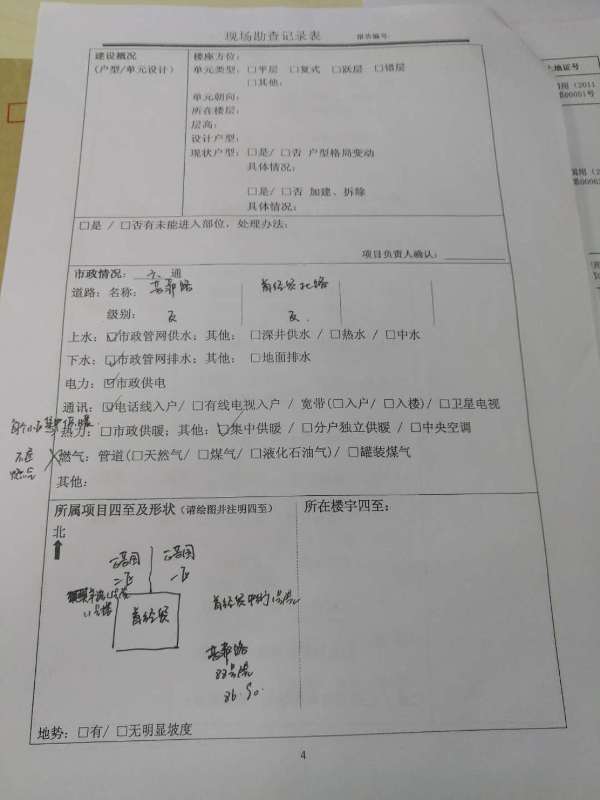 现场勘查记录表 报告编号:
建设概况
(户型/单元设计)
楼座方位:
单元类型: □平层 □复式 □跃层 □错层
□其他:
单元朝向:
所在楼层:
层高:
设计户型:
现状户型: □是/ □否 户型格局变动
具体情况:
□是/ □否 加建、拆除
具体情况:
□是 / □否有未能进入部位, 处理办法:
项目负责人确认:
市政情况: 六 通
道路: 名称: 首经贸北路
级别:
上水: ☑市政管网供水; 其他: □深井供水 / □热水 / □中水
下水: ☑市政管网排水; 其他: □地面排水
电力: ☑市政供电
通讯: ☑电话线入户/ □有线电视入户 / 宽带(□入户/ □入楼)/ □卫星电视
热力: □市政供暖; 其他: ☑集中供暖 / □分户独立供暖 / □中央空调
燃气: 管道(□天然气/ □煤气/ □液化石油气)/ □罐装煤气
其他:
所属项目四至及形状 (请绘图并注明四至)
所在楼宇四至:
北
首经贸
地势: □有/ □无明显坡度
4
土地证号
(2011
第00051号